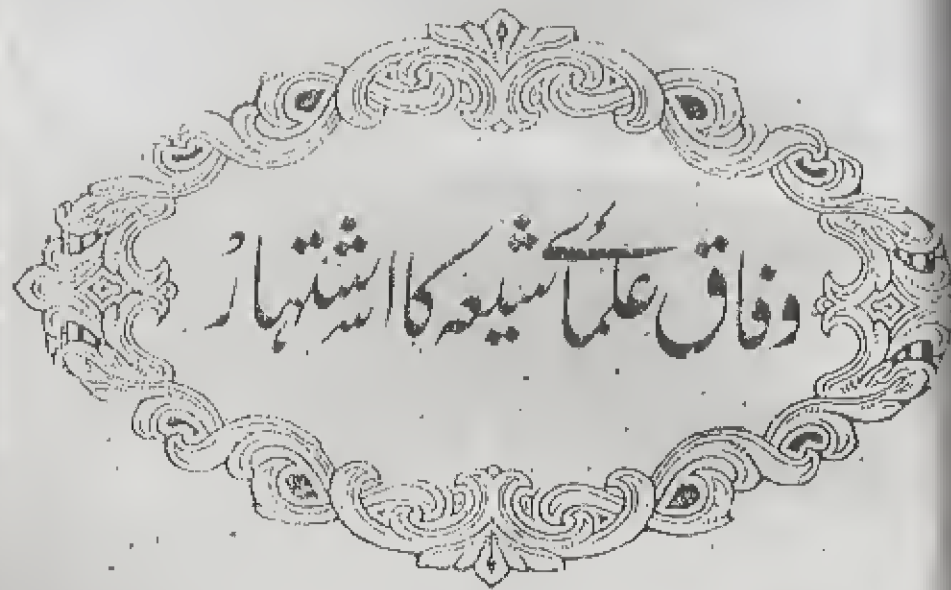 وفاق علمائے شیعہ کا اشتہار